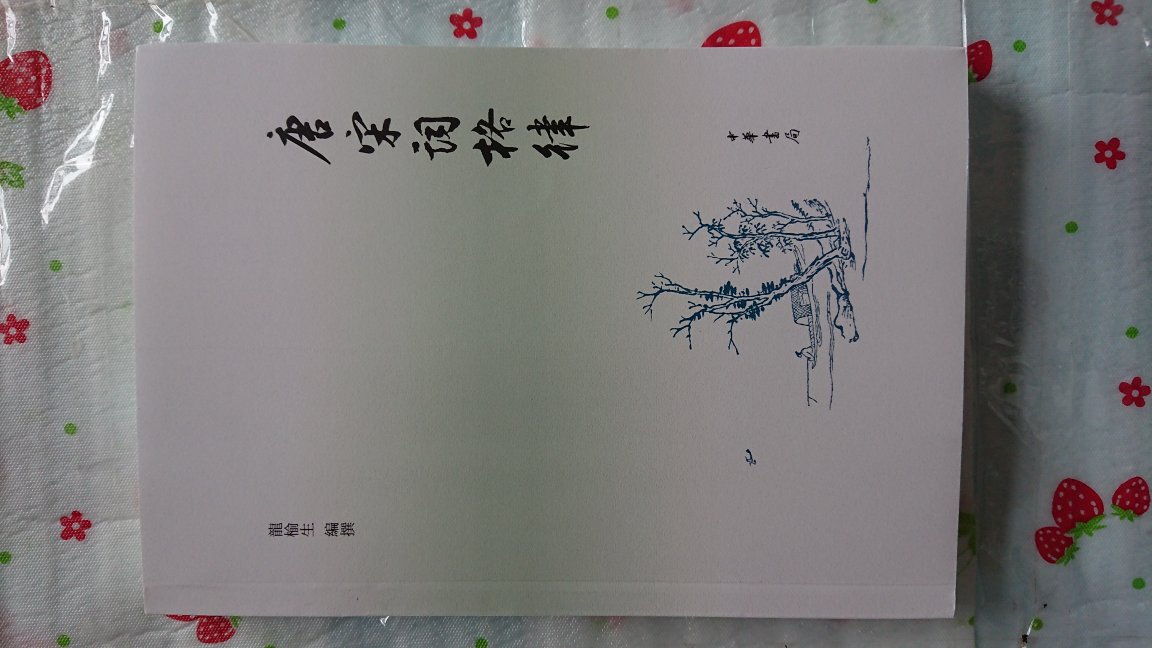 唐宋詞格律
龍榆生 編撰
中華書局